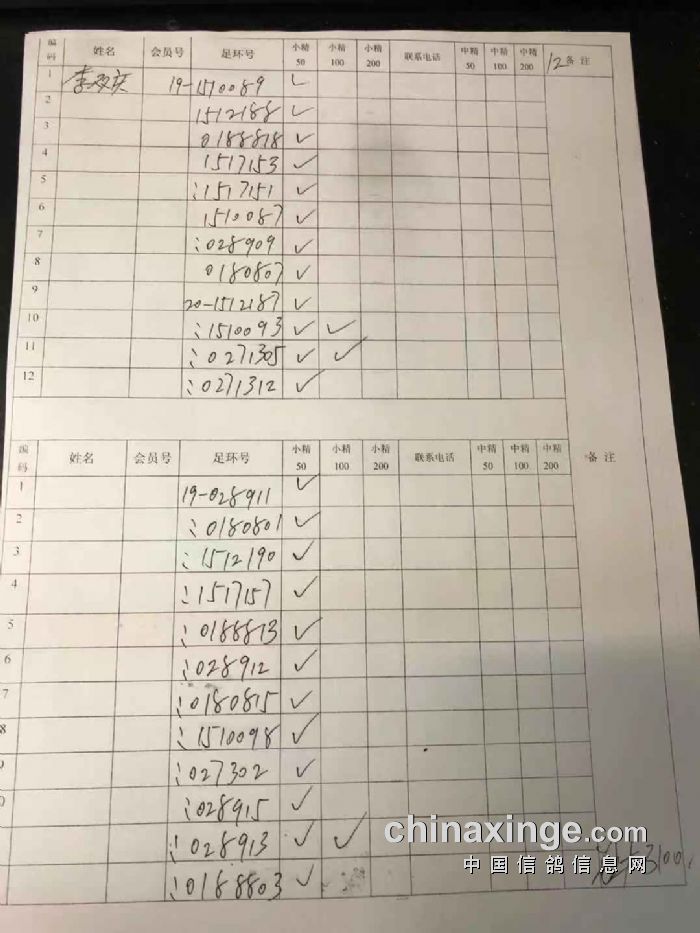 编码 姓名 会员号 足环号 小精50 小精100 小精200 联系电话 中精50 中精100 中精200 12 备注
1 李双庆 19-1510089 ✓
2 1512188 ✓
3 0188818 ✓
4 1517153 ✓
5 ：1517151 ✓
6 1510087 ✓
7 ：028909 ✓
8 0180807 ✓
9 20-1512187 ✓
10 ：1510093 ✓ ✓
11 ：0271305 ✓ ✓
12 ：0271312 ✓
编码 姓名 会员号 足环号 小精50 小精100 小精200 联系电话 中精50 中精100 中精200 备注
1 19-028911 ✓
2 ：0180801 ✓
3 ：1512190 ✓
4 ：1517157 ✓
5 ：0188813 ✓
6 ：028912 ✓
7 ：0180815 ✓
8 ：1510098 ✓
9 ：027302 ✓
0 ：028915 ✓
：028913 ✓ ✓
：0188803 ✓
3100
chinaxinge.com
中国信鸽信息网